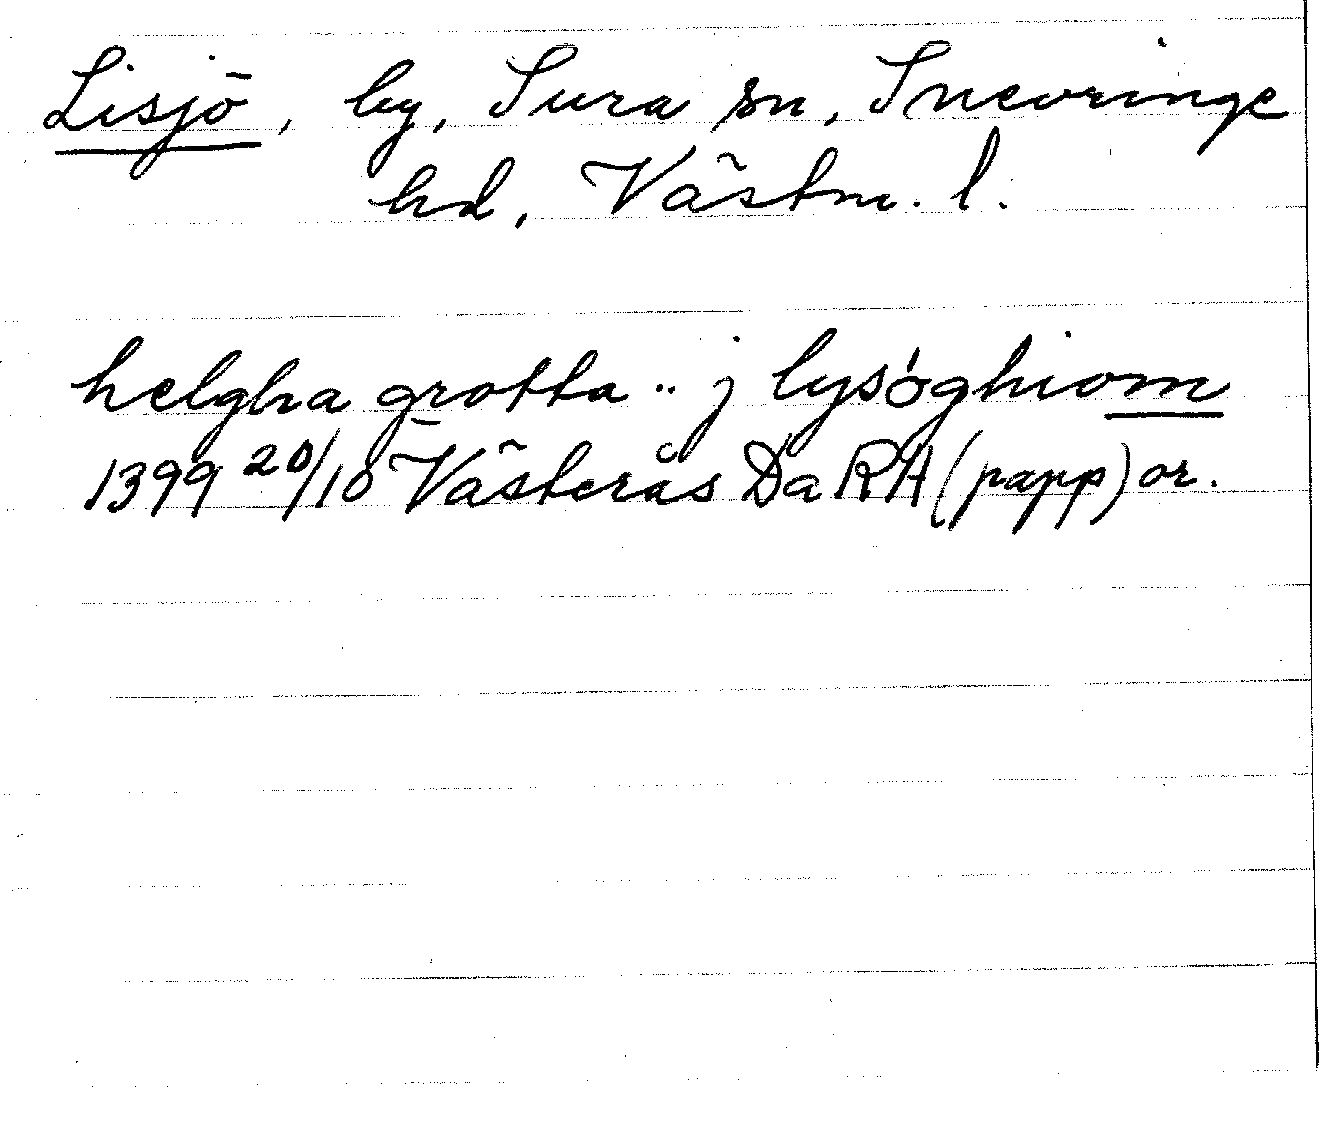 Lisjö, by, Sura sn, Snevringe
hd, Västm. l.
helgha grotta .. j lysøghiom
1399 20/10 Västerås Da RA (papp) or.